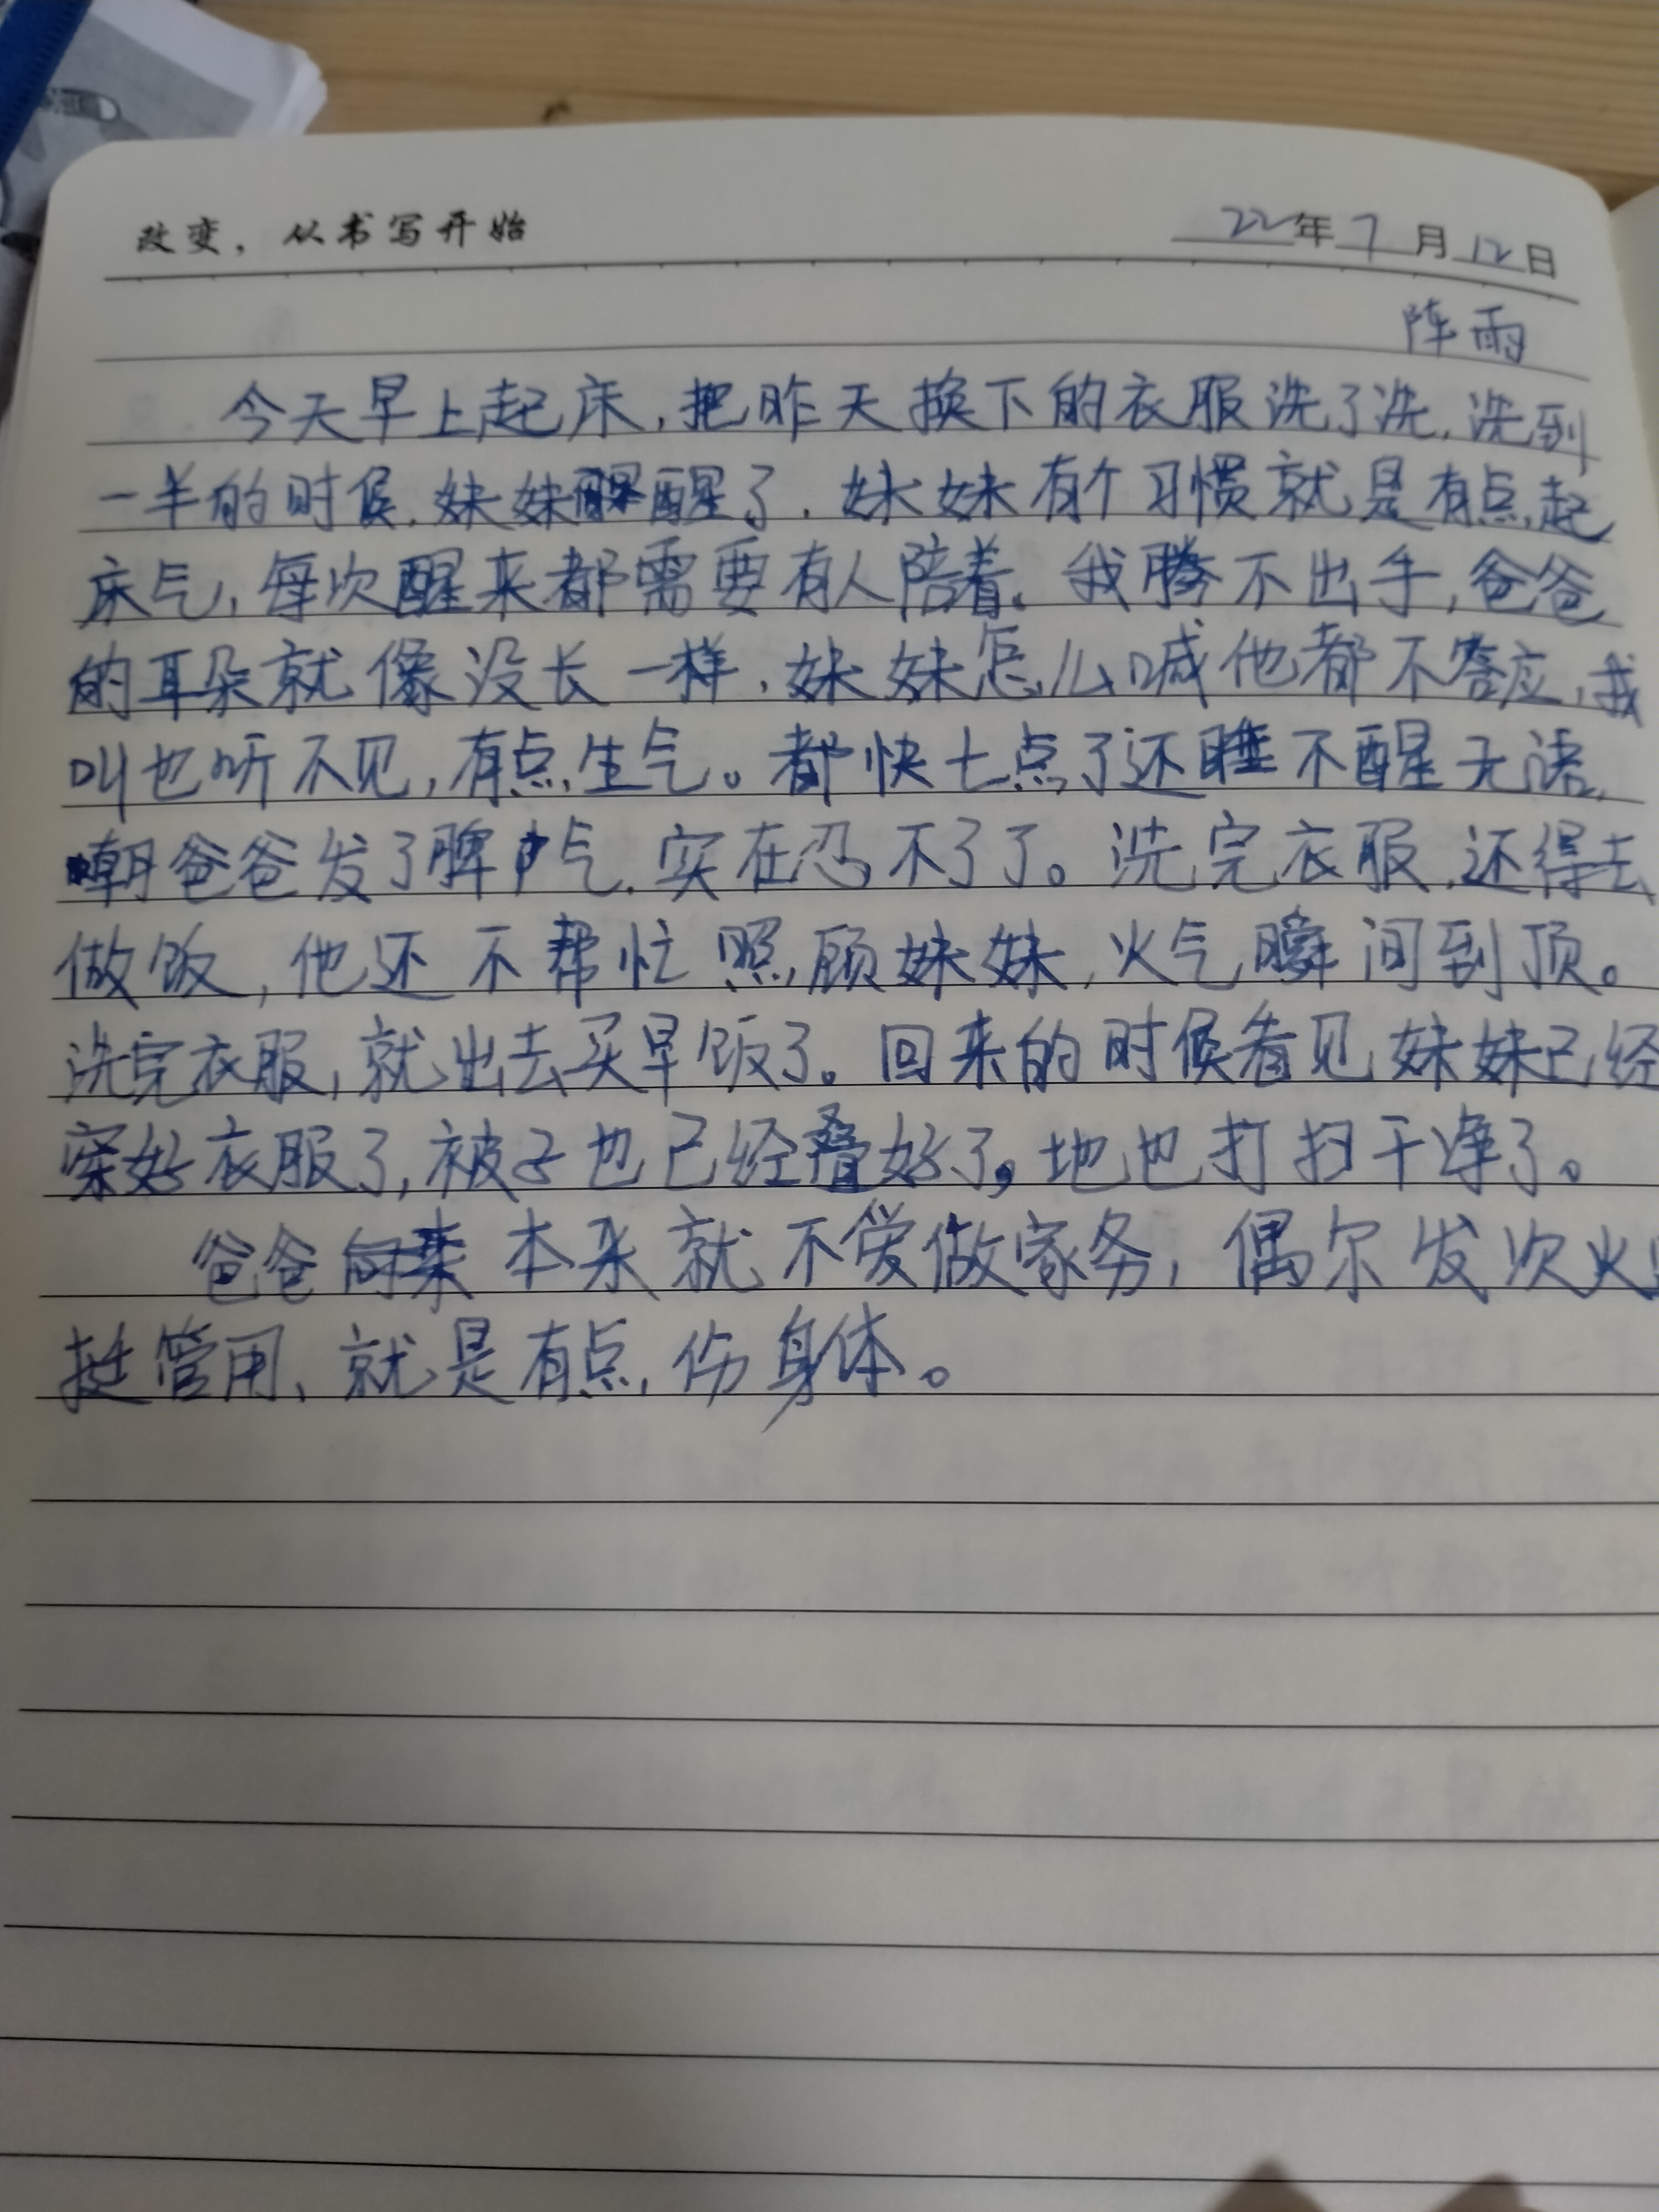 改变，从书写开始
22年7月12日
阵雨
今天早上起床，把昨天换下的衣服洗了洗，洗到
一半的时候，妹妹醒了，妹妹有个习惯就是有点起
床气，每次醒来都需要有人陪着。我腾不出手，爸爸
的耳朵就像没长一样，妹妹怎么喊他都不答应，我
叫也听不见，有点生气。都快七点了还睡不醒无语，
朝爸爸发了脾气，实在忍不了了。洗完衣服，还得去
做饭，他还不帮忙照顾妹妹，火气瞬间到顶。
洗完衣服，就出去买早饭了。回来的时候看见妹妹已经
穿好衣服了，被子也已经叠好了，地也打扫干净了。
爸爸本来就不爱做家务，偶尔发次火
挺管用、就是有点伤身体。